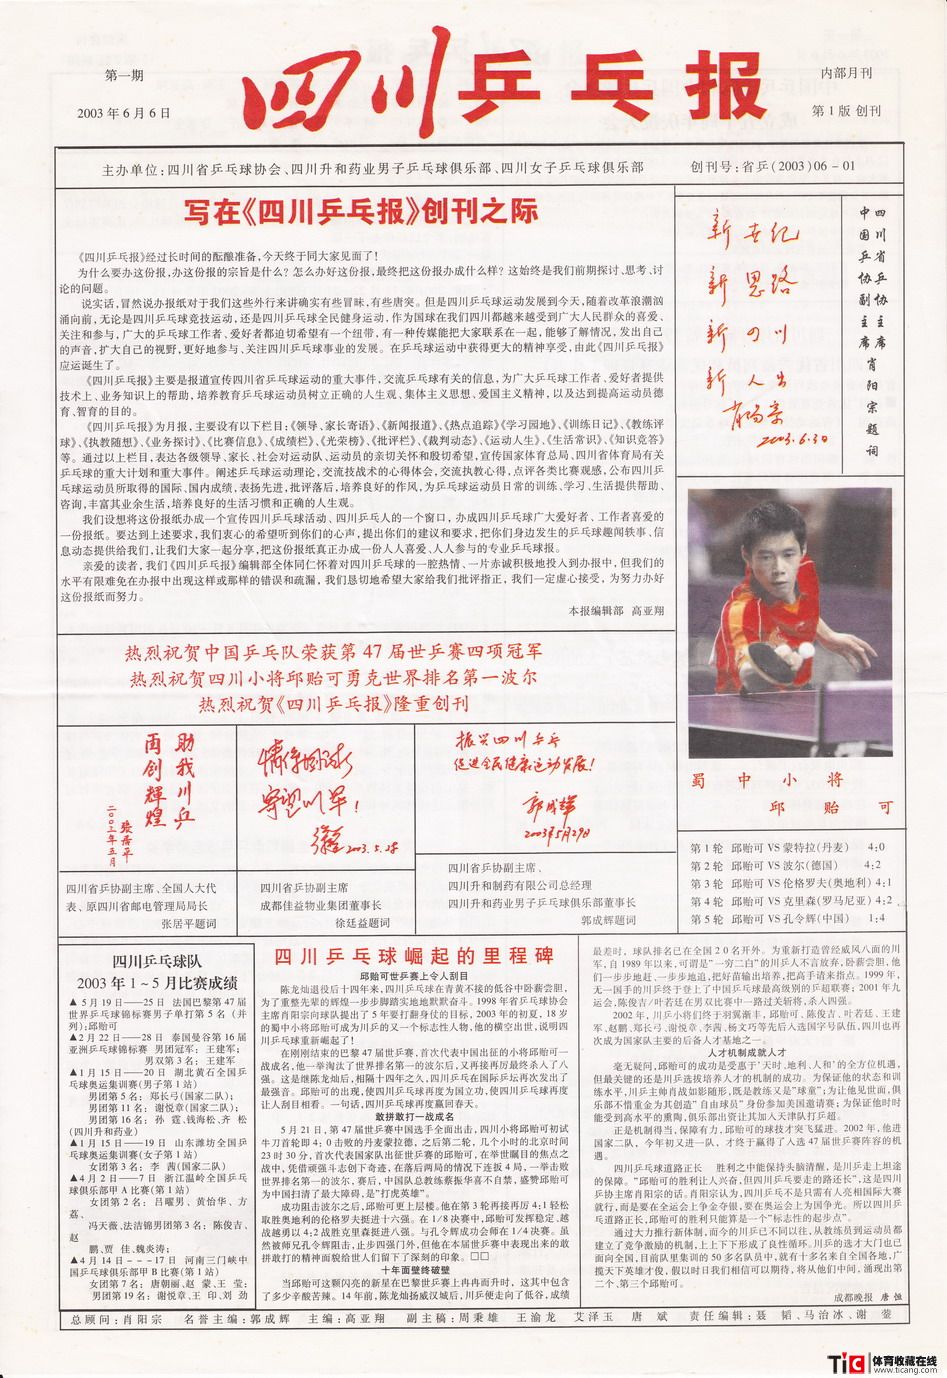 第一期
2003年6月6日
四川乒乓报
内部月刊
第1版 创刊
主办单位:四川省乒乓球协会、四川升和药业男子乒乓球俱乐部、四川女子乒乓球俱乐部
创刊号:省乒(2003)06-01
写在《四川乒乓报》创刊之际
《四川乒乓报》经过长时间的酝酿准备,今天终于同大家见面了!
为什么要办这份报,办这份报的宗旨是什么?怎么办好这份报,最终把这份报办成什么样?这始终是我们前期探讨、思考、讨
论的问题。
说实话,冒然说办报纸对于我们这些外行来讲确实有些冒昧,有些唐突。但是四川乒乓球运动发展到今天,随着改革浪潮汹
涌向前,无论是四川乒乓球竞技运动,还是四川乒乓球全民健身运动,作为国球在我们四川都越来越受到广大人民群众的喜爱、
关注和参与,广大的乒乓球工作者、爱好者都迫切希望有一个纽带,有一种传媒能把大家联系在一起,能够了解情况,发出自己
的声音,扩大自己的视野,更好地参与、关注四川乒乓球事业的发展。在乒乓球运动中获得更大的精神享受,由此《四川乒乓报》
应运诞生了。
《四川乒乓报》主要是报道宣传四川省乒乓球运动的重大事件,交流乒乓球有关的信息,为广大乒乓球工作者、爱好者提供
技术上、业务知识上的帮助,培养教育乒乓球运动员树立正确的人生观、集体主义思想、爱国主义精神,以及达到提高运动员德
育、智育的目的。
《四川乒乓报》为月报,主要设有以下栏目:《领导、家长寄语》、《新闻报道》、《热点追踪》《学习园地》、《训练日记》、《教练评
球》、《执教随想》、《业务探讨》、《比赛信息》、《成绩栏》、《光荣榜》、《批评栏》、《裁判动态》、《运动人生》、《生活常识》、《知识竞答》
等。通过以上栏目,表达各级领导、家长、社会对运动队、运动员的亲切关怀和殷切希望,宣传国家体育总局、四川省体育局有关
乒乓球的重大计划和重大事件。阐述乒乓球运动理论,交流技战术的心得体会,交流执教心得,点评各类比赛观感,公布四川乒
乓球运动员所取得的国际、国内成绩,表扬先进,批评落后,培养良好的作风,为乒乓球运动员日常的训练、学习、生活提供帮助、
咨询,丰富其业余生活,培养良好的生活习惯和正确的人生观。
我们设想将这份报纸办成一个宣传四川乒乓球活动、四川乒乓人的一个窗口,办成四川乒乓球广大爱好者、工作者喜爱的
一份报纸。要达到上述要求,我们衷心的希望听到你们的心声,提出你们的建议和要求,把你们身边发生的乒乓球趣闻轶事、信
息动态提供给我们,让我们大家一起分享,把这份报纸真正办成一份人人喜爱、人人参与的专业乒乓球报。
亲爱的读者,我们《四川乒乓报》编辑部全体同仁怀着对四川乒乓球的一腔热情、一片赤诚积极地投入到办报中,但我们的
水平有限难免在办报中出现这样或那样的错误和疏漏,我们恳切地希望大家给我们批评指正,我们一定虚心接受,为努力办好
这份报纸而努力。
本报编辑部 高亚翔
新世纪
新思路
新四川
新人出
肖阳宗
2003.6.3日
四川省乒协主席
中国乒协副主席 肖阳宗题词
热烈祝贺中国乒乓队荣获第47届世乒赛四项冠军
热烈祝贺四川小将邱贻可勇克世界排名第一波尔
热烈祝贺《四川乒乓报》隆重创刊
助我川乒
再创辉煌
张居平
二00三年五月
情系国球
寄望川军!
2003.5.28
振兴四川乒乓
促进全民健康运动发展!
郭成辉
2003年5月29日
四川省乒协副主席、全国人大代
表、原四川省邮电管理局局长
张居平题词
四川省乒协副主席
成都佳益物业集团董事长
徐廷益题词
四川省乒协副主席、
四川升和制药有限公司总经理
四川升和药业男子乒乓球俱乐部董事长
郭成辉题词
蜀中小将
邱贻可
第1轮 邱贻可 VS 蒙特拉(丹麦) 4:0
第2轮 邱贻可 VS 波尔(德国) 4:2
第3轮 邱贻可 VS 伦格罗夫(奥地利) 4:1
第4轮 邱贻可 VS 克里森(罗马尼亚) 4:2
第5轮 邱贻可 VS 孔令辉(中国) 1:4
四川乒乓球队
2003年1~5月比赛成绩
▲5月19日——25日 法国巴黎第47届
世界乒乓球锦标赛男子单打第5名(并
列):邱贻可
▲2月22日——28日 泰国曼谷第16届
亚洲乒乓球锦标赛 男团冠军:王建军;
男双第3名:王建军
▲1月15日——20日 湖北黄石全国乒
乓球奥运集训赛(男子第1站)
男团第5名:郑长弓(国家二队);
男团第11名:谢悦章(国家二队);
男团第16名:孙 霆、钱海松、齐 松
(四川升和药业)
▲1月15日——19日 山东潍坊全国乒
乓球奥运集训赛(女子第1站)
女团第3名:李 茜(国家二队)
▲4月2日——7日 浙江温岭全国乒乓
球俱乐部甲A比赛(第1站)
女团第2名:吕曜男、黄怡华、方
荔、
冯天薇、法洁锦男团第3名:陈俊吉、
赵
鹏、贾 佳、魏炎涛;
▲4月14日---17日 河南三门峡中
国乒乓球俱乐部甲B比赛(第1站)
女团第7名:唐朝丽、赵 蒙、王 莹;
男团第19名:谢悦章、王 印、刘 劲
四川乒乓球崛起的里程碑
邱贻可世乒赛上令人刮目
陈龙灿退役后十四年来,四川乒乓球在青黄不接的低谷中卧薪尝胆,
为了重整先辈的辉煌一步步脚踏实地地默默奋斗。1998年省乒乓球协会
主席肖阳宗向球队提出了5年要打翻身仗的目标,2003年的初夏,18岁
的蜀中小将邱贻可成为川乒的又一个标志性人物,他的横空出世,说明四
川乒乓球重新崛起了!
在刚刚结束的巴黎47届世乒赛,首次代表中国出征的小将邱贻可一
战成名,他一举淘汰了世界排名第一的波尔后,又再接再厉最终杀入了八
强。这是继陈龙灿后,相隔十四年之久,四川乒乓在国际乒坛再次发出了
最强音。邱贻可的出现,使四川乒乓球再度为国立功,使四川乒乓球再度
让人刮目相看。一句话,四川乒乓球再度赢回春天。
敢拼敢打一战成名
5月21日,第47届世乒赛中国选手全面出击,四川小将邱贻可初试
牛刀首轮即4:0击败的丹麦蒙拉德,之后第二轮,几个小时的北京时间
23时30分,首次代表国家队出征世乒赛的邱贻可,在举世瞩目的焦点之
战中,凭借顽强斗志创下奇迹,在落后两局的情况下连扳4局,一举击败
世界排名第一的波尔,赛后,中国队总教练蔡振华喜不自禁,盛赞邱贻可
为中国扫清了最大障碍,是“打虎英雄”。
成功阻击波尔之后,邱贻可更上层楼。他在第3轮再接再厉4:1轻松
取胜奥地利的伦格罗夫挺进十六强。在1/8决赛中,邱贻可发挥稳定、越
战越勇以4:2战胜克里森挺进八强。与孔令辉成功会师在1/4决赛。虽
然被师兄孔令辉阻击,止步四强门外,但他在本届世乒赛中表现出来的敢
拼敢打的精神而貌给世人们留下了深刻的印象。□□
十年面壁终破壁
当邱贻可这颗闪亮的新星在巴黎世乒赛上冉冉而升时,这其中包含
了多少辛酸苦辣。14年前,陈龙灿扬威汉城后,川乒便走向了低谷,成绩
最差时,球队排名已在全国20名开外。为重新打造曾经威风八面的川
军,自1989年以来,可谓是“一穷二白”的川乒人不言放弃,卧薪尝胆,他
们一步步地赶、一步步地追,把好苗输出培养,把高手请来指点。1999年,
无一国手的川乒终于登上了中国乒乓球最高级别的乒超联赛;2001年九
运会,陈俊吉/叶若廷在男双比赛中一路过关斩将,杀入四强。
2002年,川乒小将们终于羽翼渐丰,邱贻可、陈俊吉、叶若廷、王建
军、赵鹏、郑长弓、谢悦章、李茜、杨文巧等先后入选国字号队伍,四川也再
次成为国家队主要的后备人才基地之一。
人才机制成就人才
毫无疑问,邱贻可的成功是受惠于‘天时、地利、人和’的全方位机遇,
但最关键的还是川乒选拔培养人才的机制的成功。为保证他的状态和训
练水平,川乒主帅肖战如影随形,既是教练又是“球童”;为让他见世面,俱
乐部不惜重金为其创造“自由球员”身份参加美国邀请赛;为保证他时时
能受到高水平的熏陶,俱乐部出资让其加入天津队打乒超。
正是机制得当,保障有力,邱贻可的球技才突飞猛进。2002年,他进
国家二队,今年初又进一队,才终于赢得了入选47届世乒赛阵容的机
遇。
四川乒乓球道路正长 胜利之中能保持头脑清醒,是川乒走上坦途
的保障。“邱贻可的胜利让人兴奋,但四川乒乓要走的路还长”,这是四川
乒协主席肖阳宗的话。肖阳宗认为,四川乒乓不是只需有人亮相国际大赛
就行,而是要在全运会上争金夺银,要在奥运会上为国争光。所以四川乒
乓道路正长,邱贻可的胜利只能算是一个“标志性的起步点”。
通过大力推行新体制,而今的川乒已不同以往,从教练员到运动员都
建立了竞争激励的机制,上上下下形成了良性循环,川乒的选才大门也已
面向全国,目前队里集训的50多名队员中,就有十多名来自全国各地,广
揽天下英雄才俊,假以时日我们相信可以期待,将从他们中间,涌现出第
二个、第三个邱贻可。
成都晚报 唐恒
总顾问:肖阳宗 名誉主编:郭成辉 主编:高亚翔 副主稿:周秉雄 王渝龙 艾泽玉 唐斌 责任编辑:聂韬、马治冰、谢蓥
TiC 体育收藏在线
www.ticang.com